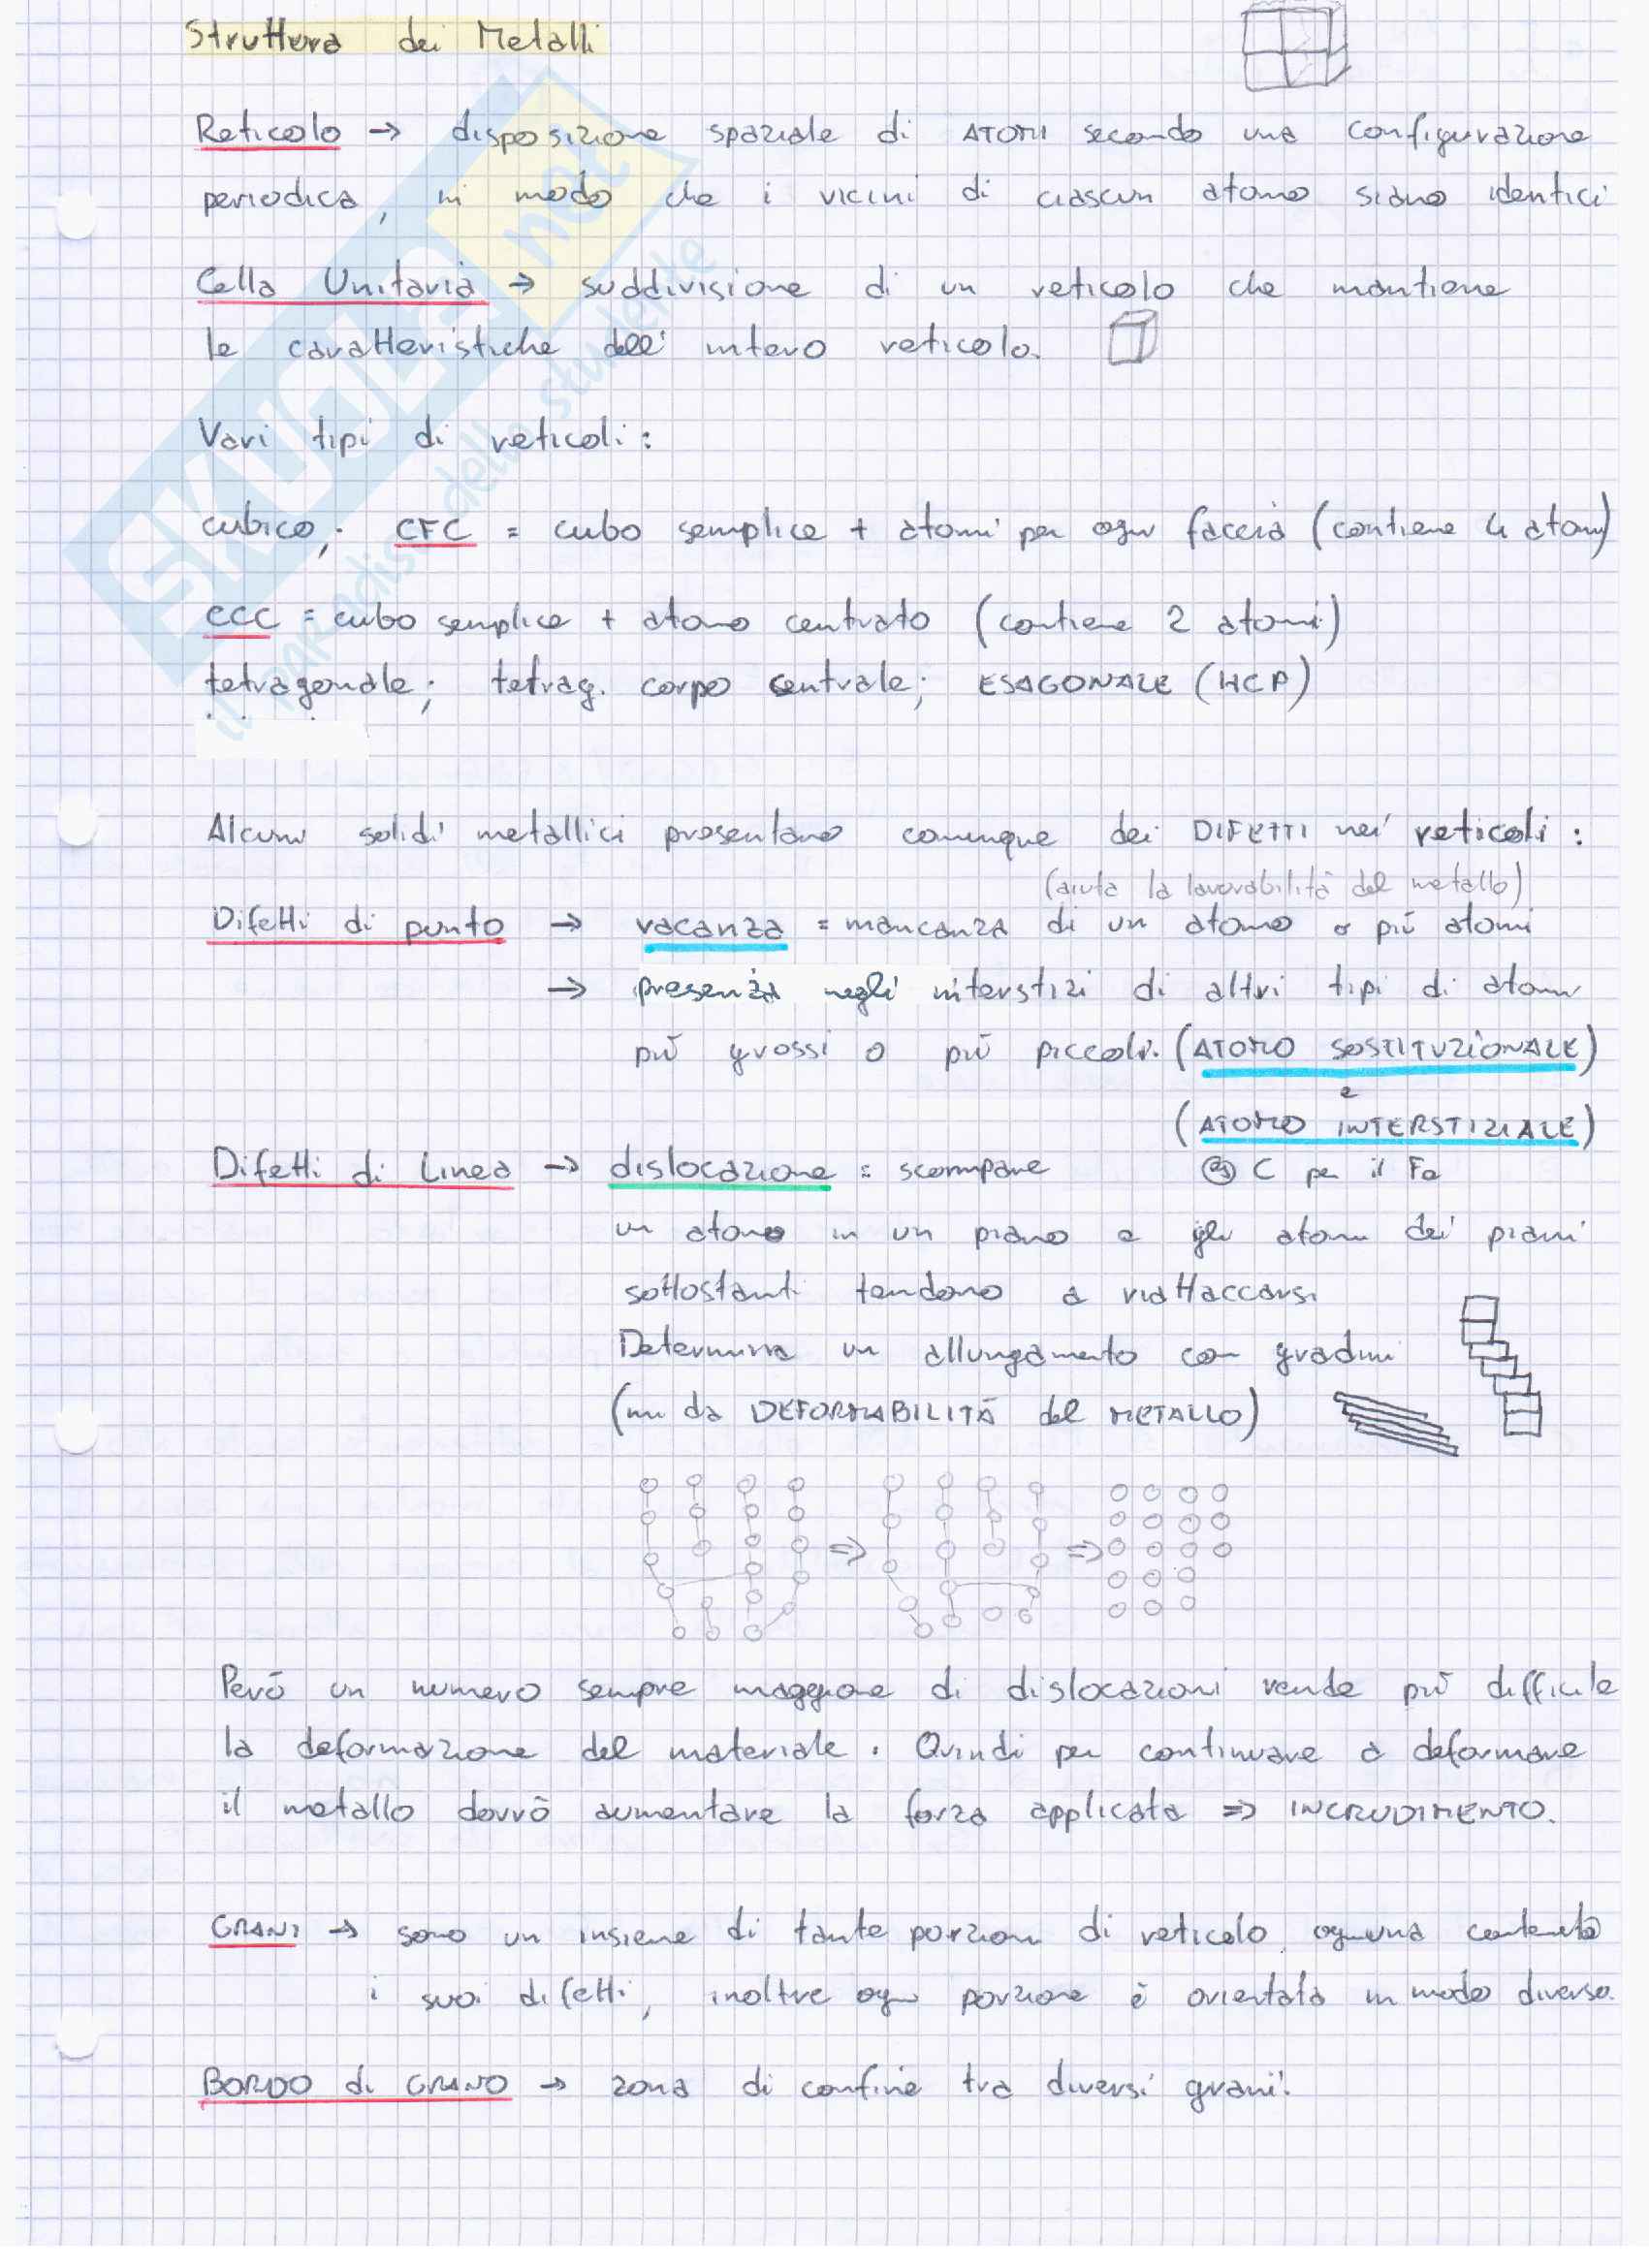 Struttura dei Metalli
Reticolo → disposizione spaziale di ATOMI secondo una configurazione
periodica, in modo che i vicini di ciascun atomo siano identici
Cella Unitaria → suddivisione di un reticolo che mantiene
le caratteristiche dell'intero reticolo.
Vari tipi di reticoli:
cubico; CFC = cubo semplice + atomi per ogni faccia (contiene 4 atomi)
CCC = cubo semplice + atomo centrato (contiene 2 atomi)
tetragonale; tetrag. corpo centrale; ESAGONALE (HCP)
Alcuni solidi metallici presentano comunque dei DIFETTI nei reticoli:
(aiuta la lavorabilità del metallo)
Difetti di punto → vacanza = mancanza di un atomo o più atomi
→ presenza negli interstizi di altri tipi di atomi
più grossi o più piccoli. (ATOMO SOSTITUZIONALE)
e
(ATOMO INTERSTIZIALE)
Difetti di Linea → dislocazione = scompare
es C per il Fe
un atomo in un piano e gli atomi dei piani
sottostanti tendono a riattaccarsi
Determina un allungamento con gradini
(mi da DEFORMABILITÀ del METALLO)
⇒ ⇒
Però un numero sempre maggiore di dislocazioni rende più difficile
la deformazione del materiale. Quindi per continuare a deformare
il metallo dovrò aumentare la forza applicata ⇒ INCRUDIMENTO.
GRANI → sono un insieme di tante porzioni di reticolo ognuna contenete
i suoi difetti, inoltre ogni porzione è orientata in modo diverso.
BORDO di GRANO → zona di confine tra diversi grani.
SKUOLA.net
il paradiso dello studente